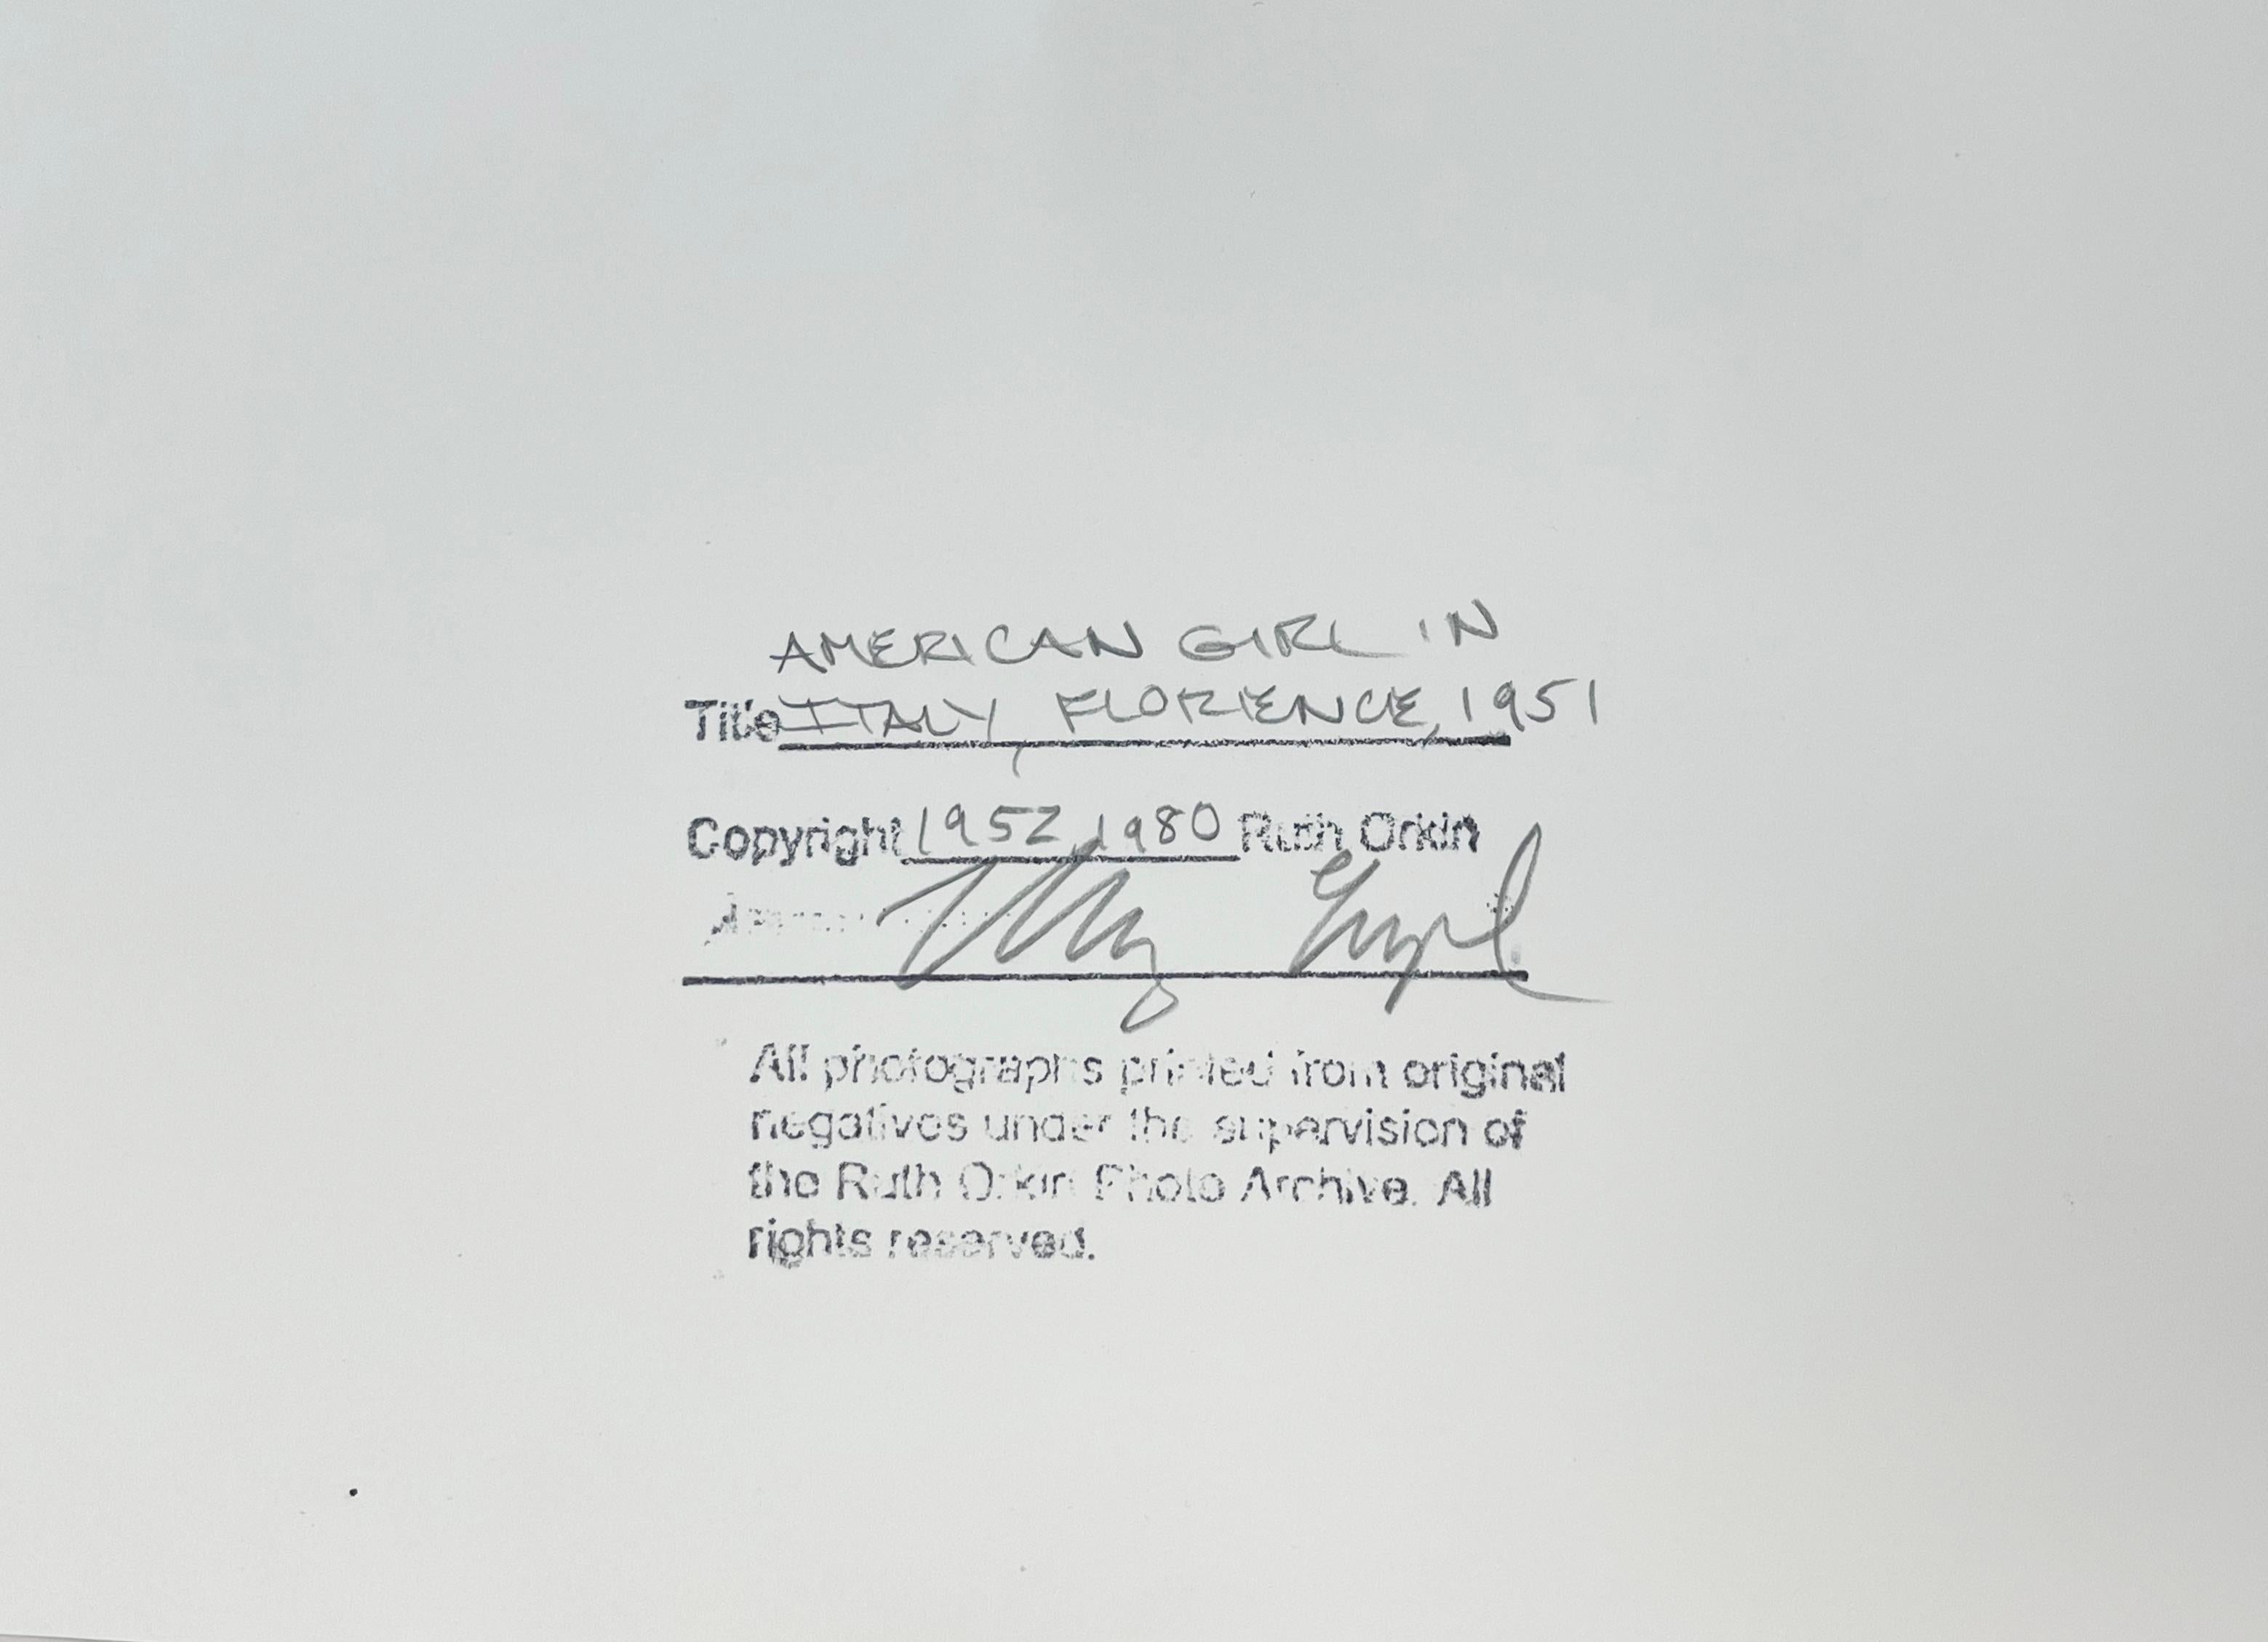 AMERICAN GIRL IN
Title ITALY, FLORENCE, 1951
Copyright 1952, 1980 Ruth Orkin
All photographs printed from original
negatives under the supervision of
the Ruth Orkin Photo Archive. All
rights reserved.